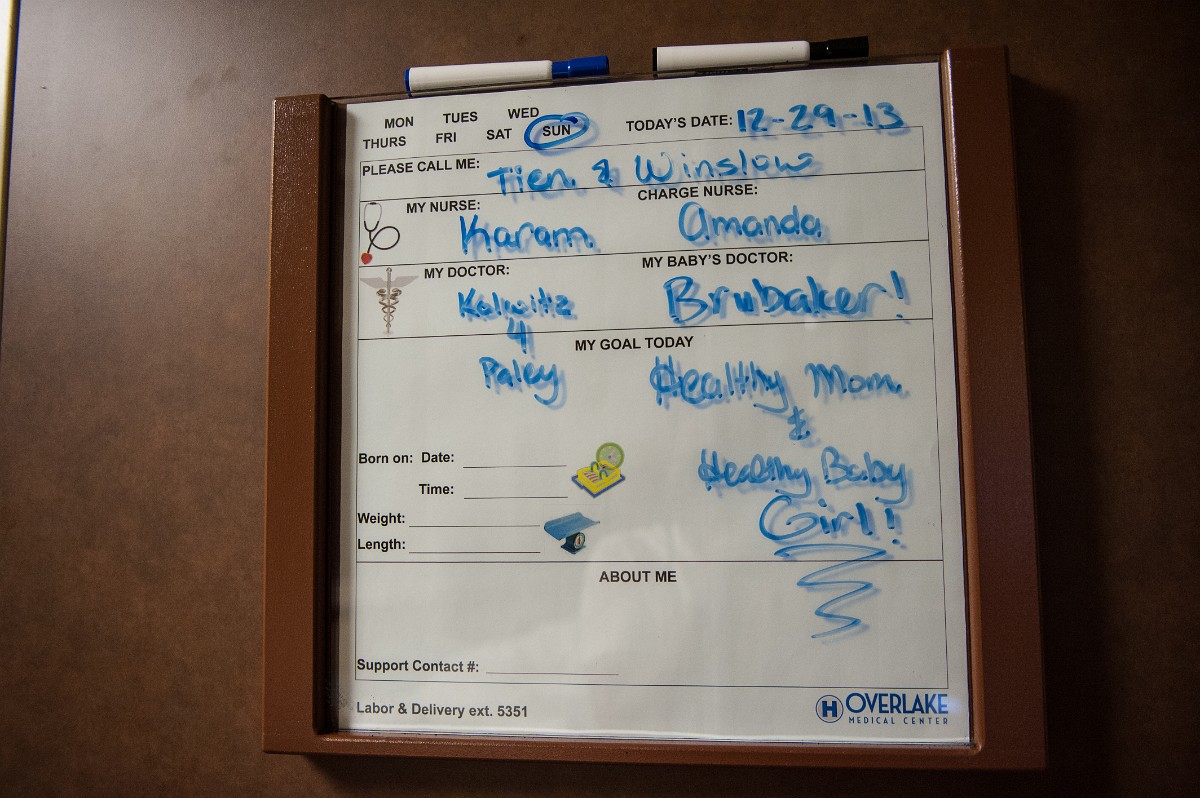 MON TUES WED
THURS FRI SAT SUN
TODAY'S DATE: 12-29-13
PLEASE CALL ME: Tien & Winslow
MY NURSE: CHARGE NURSE:
Karam Amanda
MY DOCTOR: MY BABY'S DOCTOR:
Brubaker!
MY GOAL TODAY
Paley Healthy Mom
&
Healthy Baby
Girl!
Born on: Date:
Time:
Weight:
Length:
ABOUT ME
Support Contact #:
Labor & Delivery ext. 5351
H OVERLAKE
MEDICAL CENTER